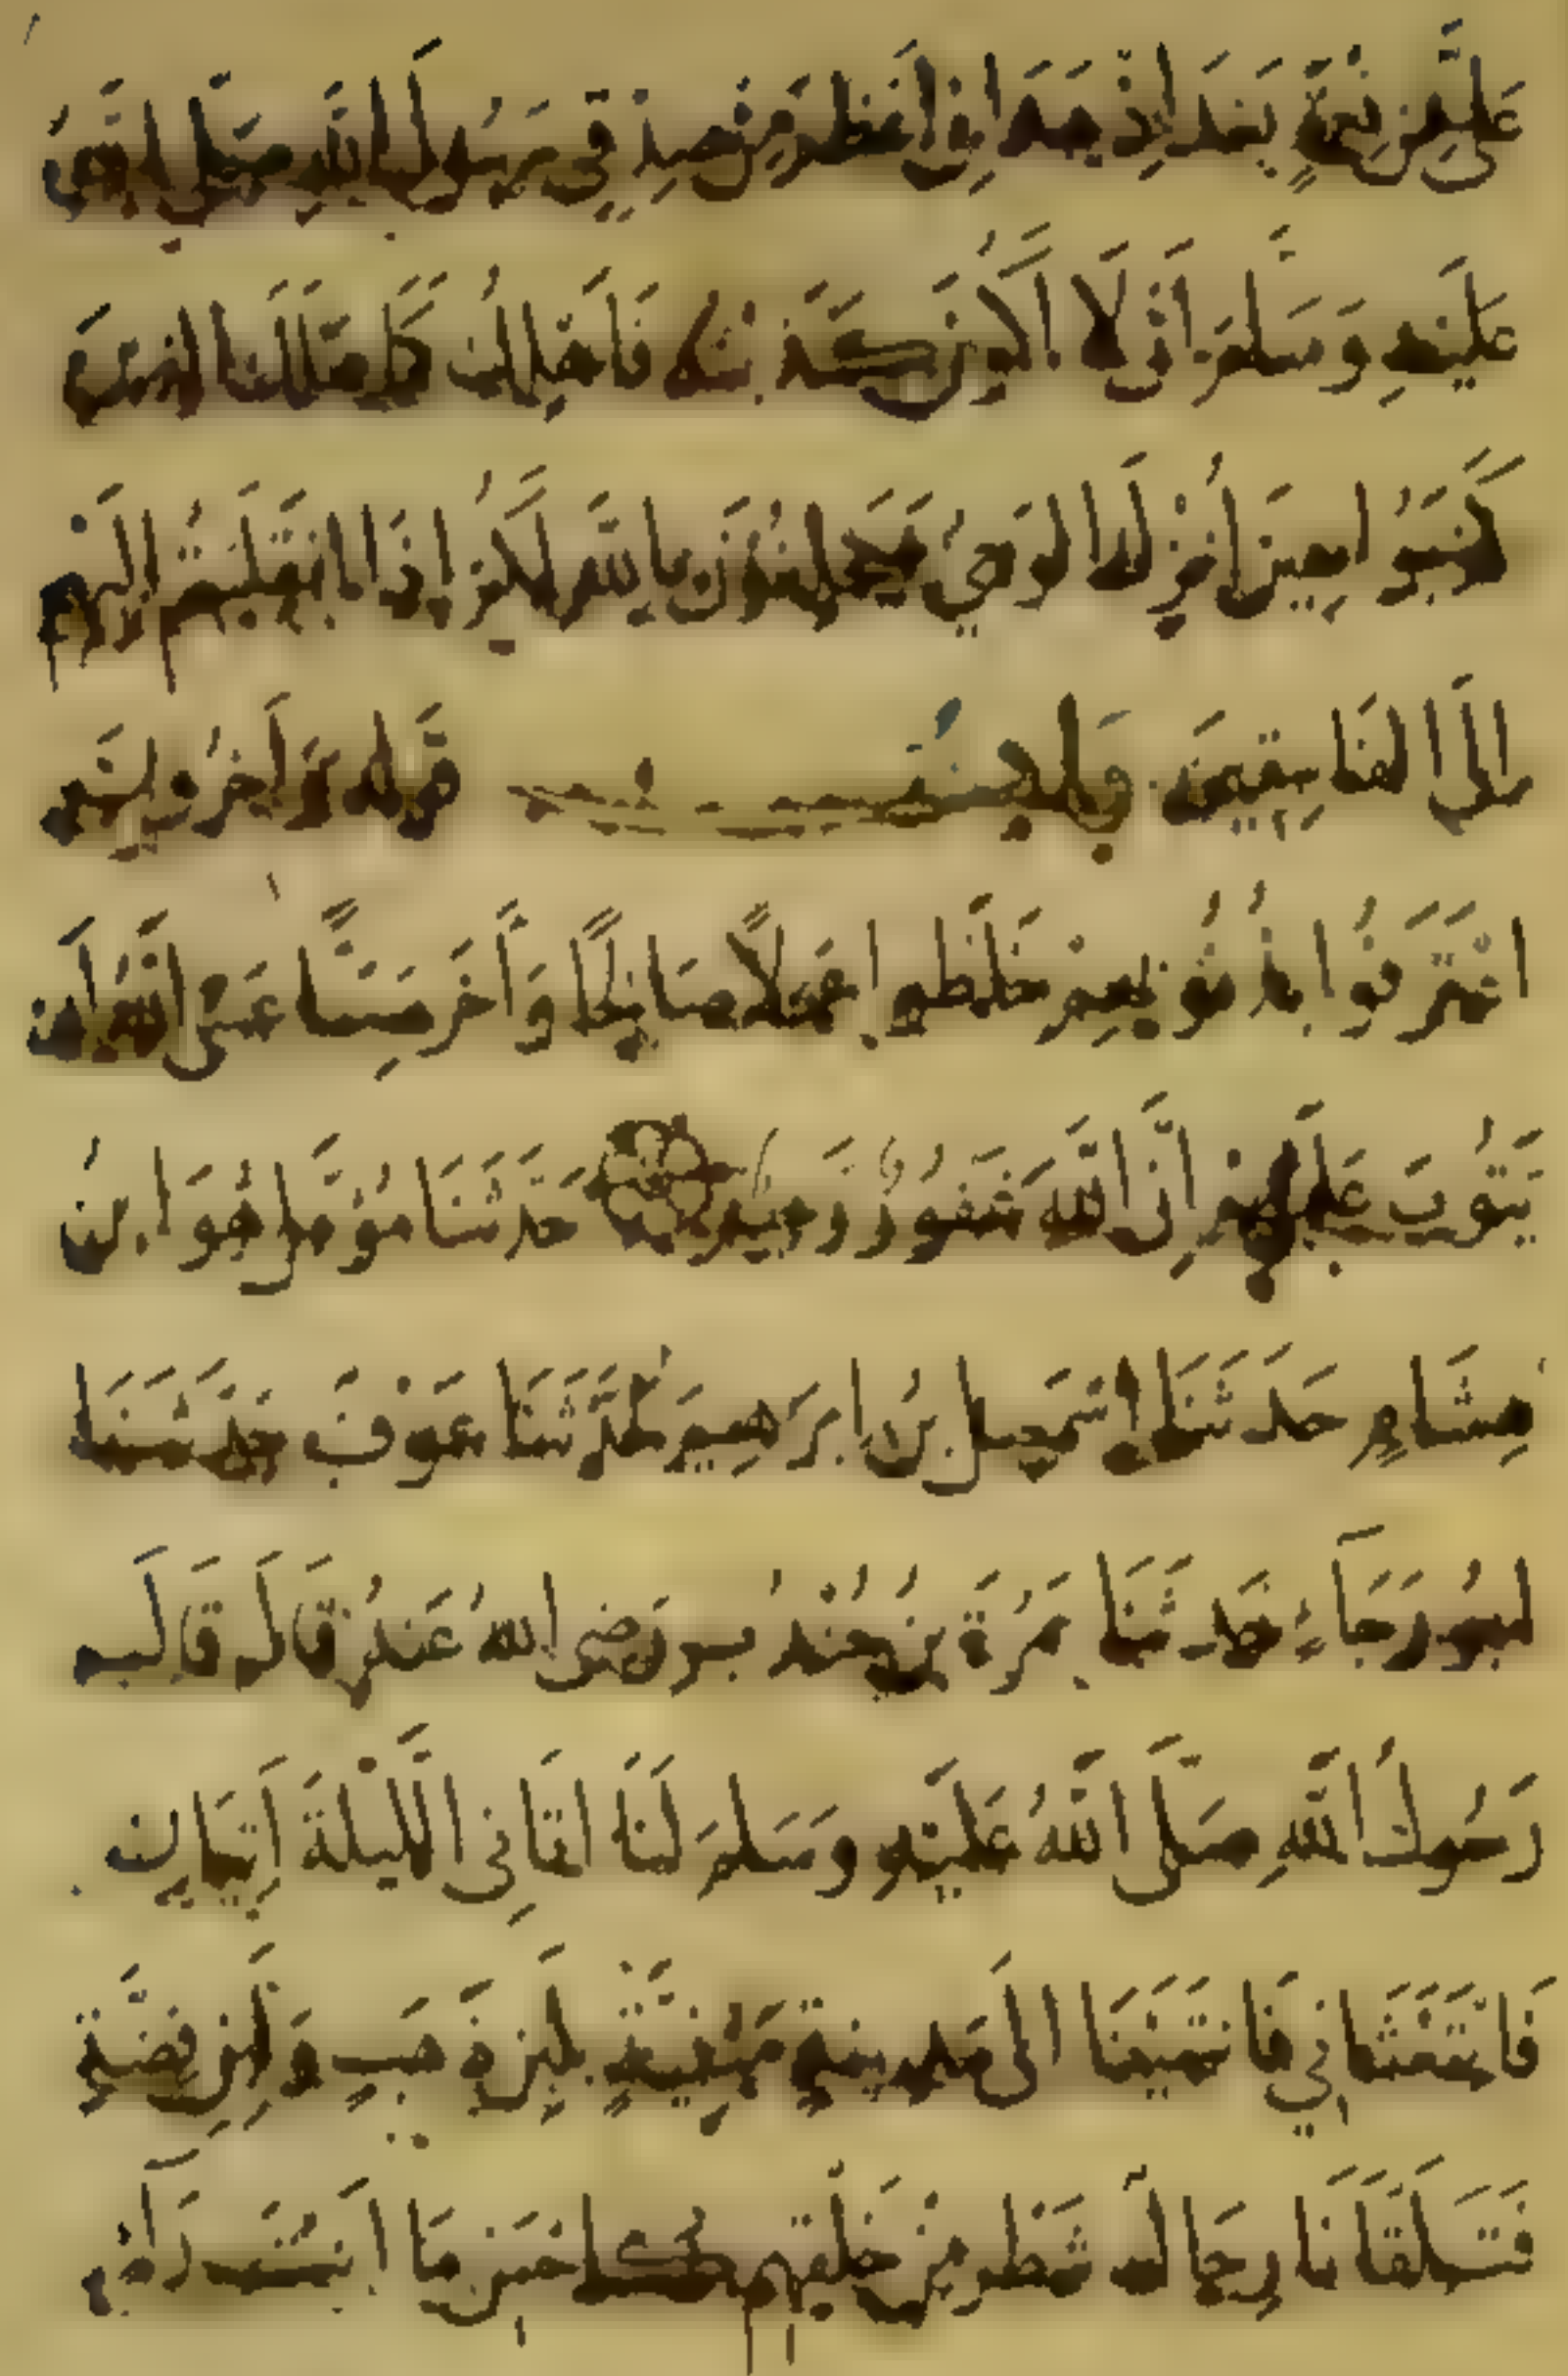 عَلَيَّ مِنْ نِعْمَةٍ بَعْدَ إِذْ هَدَانِي أَعْظَمَ مِنْ صِدْقِي رَسُولَ اللَّهِ صَلَّى اللَّهُ
عَلَيْهِ وَسَلَّمَ أَنْ لَا أَكُونَ كَذَبْتُهُ فَأَهْلِكَ كَمَا هَلَكَ الَّذِينَ
كَذَبُوا حِينَ أُنْزِلَ الْوَحْيُ سَيَحْلِفُونَ بِاللَّهِ لَكُمْ إِذَا انْقَلَبْتُمْ إِلَيْهِمْ
إِلَى الْفَاسِقِينَ بَاب قَوْلِهِ وَآخَرُونَ
اعْتَرَفُوا بِذُنُوبِهِمْ خَلَطُوا عَمَلًا صَالِحًا وَآخَرَ سَيِّئًا عَسَى اللَّهُ أَنْ
يَتُوبَ عَلَيْهِمْ إِنَّ اللَّهَ غَفُورٌ رَحِيمٌ حَدَّثَنَا مُؤَمَّلٌ هُوَ ابْنُ
هِشَامٍ حَدَّثَنَا إِسْمَعِيلُ بْنُ إِبْرَهِيمَ حَدَّثَنَا عَوْفٌ حَدَّثَنَا
أَبُو رَجَاءٍ حَدَّثَنَا سَمُرَةُ بْنُ جُنْدُبٍ رَضِيَ اللَّهُ عَنْهُ قَالَ قَالَ
رَسُولُ اللَّهِ صَلَّى اللَّهُ عَلَيْهِ وَسَلَّمَ لَنَا أَتَانِي اللَّيْلَةَ آتِيَانِ
فَابْتَعَثَانِي فَانْتَهَيْنَا إِلَى مَدِينَةٍ مَبْنِيَّةٍ بِلَبِنِ ذَهَبٍ وَلَبِنِ فِضَّةٍ
فَتَلَقَّانَا رِجَالٌ شَطْرٌ مِنْ خَلْقِهِمْ كَأَحْسَنِ مَا أَنْتَ رَاءٍ